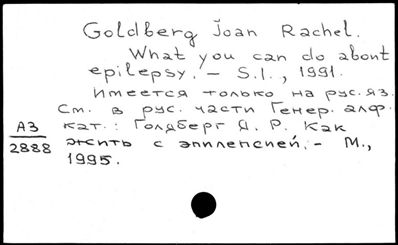 Goldberg Joan Rachel.
What you can do about
epilepsy. – S.l., 1991.
Имеется только на рус. яз.
См. в рус. части Генер. алф.
кат.: Голдберг Д. Р. Как
жить с эпилепсией. – М.,
1995.
А3
2888